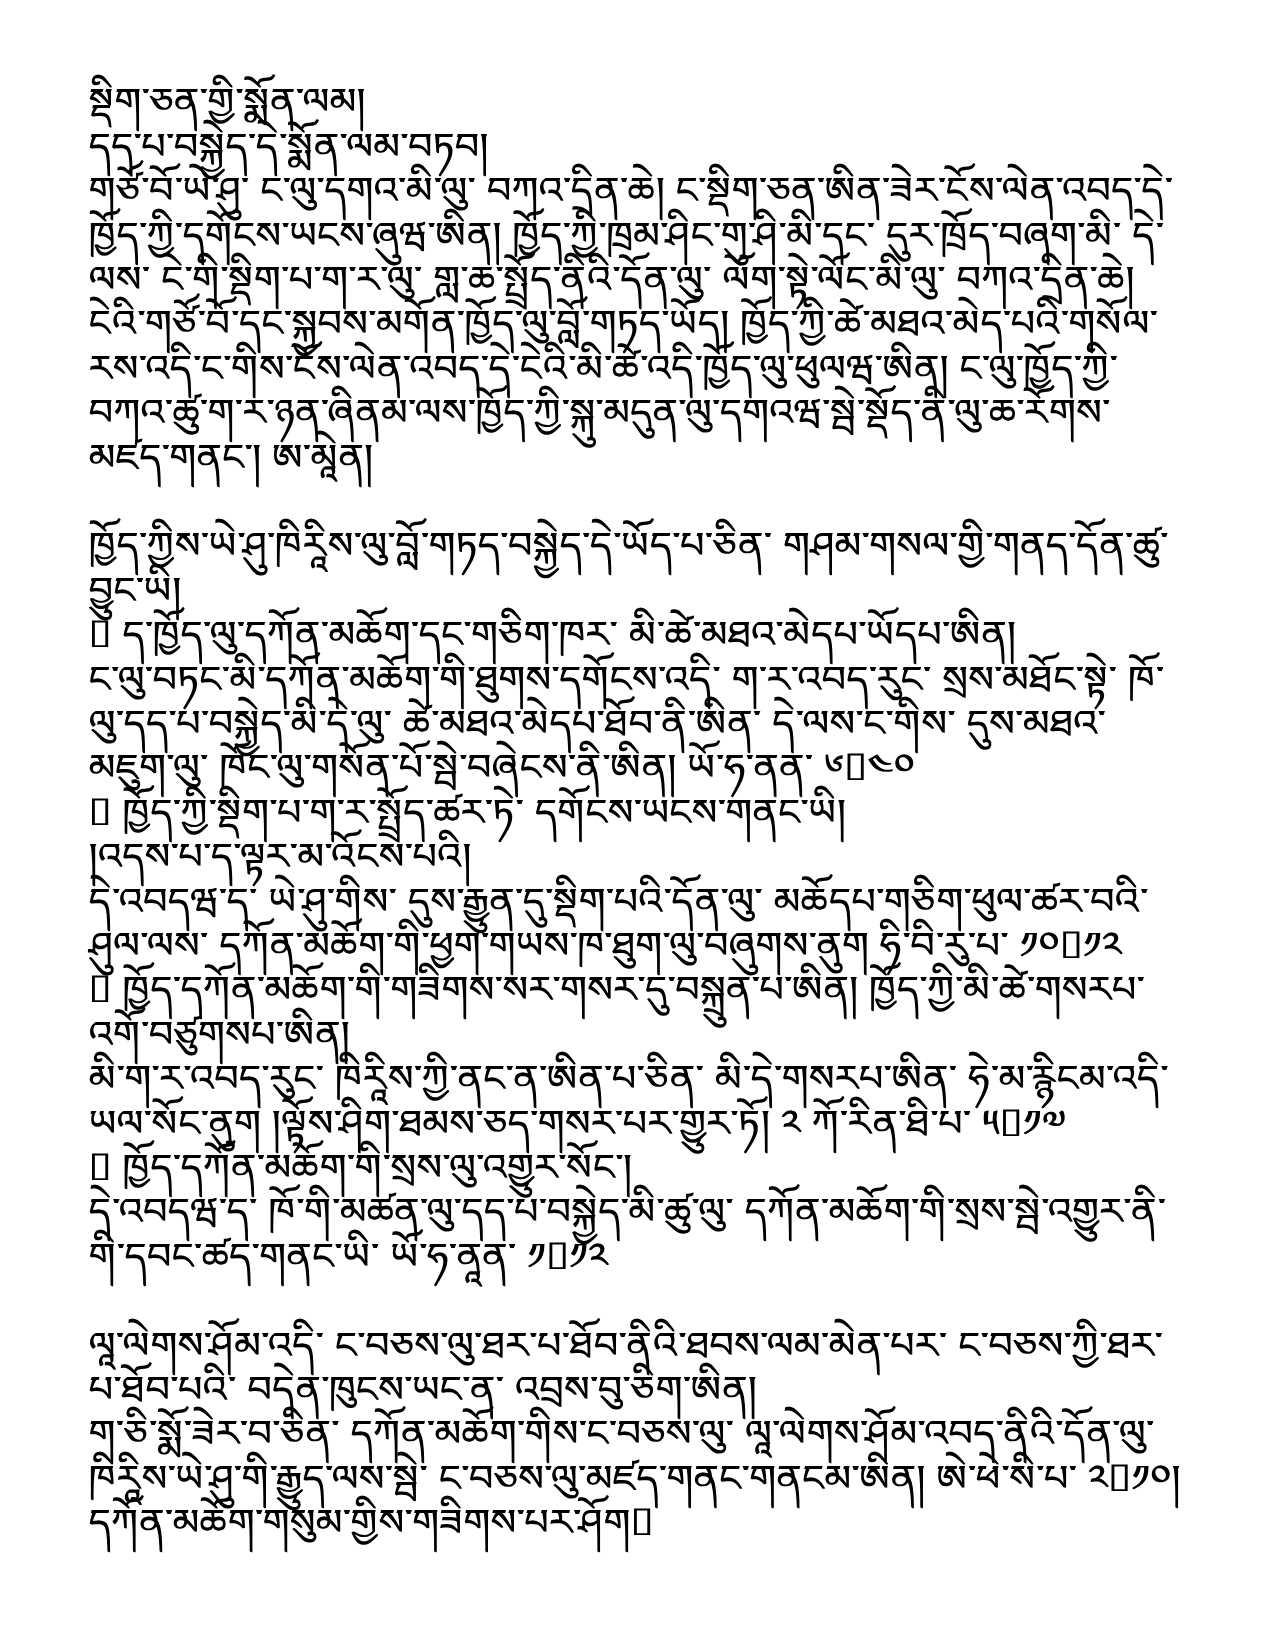 སྡིག་ཅན་གྱི་སྨོན་ལམ།
དད་པ་བསྐྱེད་དེ་སྨོན་ལམ་བཏབ།
གཙོ་བོ་ཡེ་ཤུ་ ང་ལུ་དགའ་མི་ལུ་ བཀའ་དྲིན་ཆེ། ང་སྡིག་ཅན་ཨིན་ཟེར་ངོས་ལེན་འབད་དེ་
ཁྱོད་ཀྱི་དགོངས་ཡངས་ཞུཝ་ཨིན། ཁྱོད་ཀྱི་ཁྲམ་ཤིང་གུ་ཤི་མི་དང་ དུར་ཁྲོད་བཞག་མི་ དེ་
ལས་ ངེ་གི་སྡིག་པ་ག་ར་ལུ་ གླ་ཆ་སྤྲོད་ནིའི་དོན་ལུ་ ལོག་སྟེ་ལོང་མི་ལུ་ བཀའ་དྲིན་ཆེ།
ངེའི་གཙོ་བོ་དང་སྐྱབས་མགོན་ཁྱོད་ལུ་བློ་གཏད་ཡོད། ཁྱོད་ཀྱི་ཚེ་མཐའ་མེད་པའི་གསོལ་
རས་འདི་ང་གིས་ངོས་ལེན་འབད་དེ་ངེའི་མི་ཚེ་འདི་ཁྱོད་ལུ་ཕུལཝ་ཨིན། ང་ལུ་ཁྱོད་ཀྱི་
བཀའ་ཚུ་ག་ར་ཉན་ཞིནམ་ལས་ཁྱོད་ཀྱི་སྐུ་མདུན་ལུ་དགའཝ་སྦེ་སྡོད་ནི་ལུ་ཆ་རོགས་
མཛད་གནང་། ཨ་མཱེན།

ཁྱོད་ཀྱིས་ཡེ་ཤུ་ཁིརཱིས་ལུ་བློ་གཏད་བསྐྱེད་དེ་ཡོད་པ་ཅིན་ གཤམ་གསལ་གྱི་གནད་དོན་ཚུ་
བྱུང་ཡི།
▯ ད་ཁྱོད་ལུ་དཀོན་མཆོག་དང་གཅིག་ཁར་ མི་ཚེ་མཐའ་མེདཔ་ཡོདཔ་ཨིན།
ང་ལུ་བཏང་མི་དཀོན་མཆོག་གི་ཐུགས་དགོངས་འདི་ ག་ར་འབད་རུང་ སྲས་མཐོང་སྟེ་ ཁོ་
ལུ་དད་པ་བསྐྱེད་མི་དེ་ལུ་ ཚེ་མཐའ་མེདཔ་ཐོབ་ནི་ཨིན་ དེ་ལས་ང་གིས་ དུས་མཐའ་
མཇུག་ལུ་ ཁོང་ལུ་གསོན་པོ་སྦེ་བཞེངས་ནི་ཨིན། ཡོ་ཧ་ནན་ ༦▯༤༠
▯ ཁྱོད་ཀྱི་སྡིག་པ་ག་ར་སྤྲོད་ཚར་ཏེ་ དགོངས་ཡངས་གནང་ཡི།
།འདས་པ་ད་ལྟར་མ་འོངས་པའི།
དེ་འབདཝ་ད་ ཡེ་ཤུ་གིས་ དུས་རྒྱུན་དུ་སྡིག་པའི་དོན་ལུ་ མཆོདཔ་གཅིག་ཕུལ་ཚར་བའི་
ཤུལ་ལས་ དཀོན་མཆོག་གི་ཕྱག་གཡས་ཁ་ཐུག་ལུ་བཞུགས་ནུག ཧི་བི་རུ་པ་ ༡༠▯༡༢
▯ ཁྱོད་དཀོན་མཆོག་གི་གཟིགས་སར་གསར་དུ་བསྐྲུན་པ་ཨིན། ཁྱོད་ཀྱི་མི་ཚེ་གསརཔ་
འགོ་བཙུགསཔ་ཨིན།
མི་ག་ར་འབད་རུང་ ཁིརཱིས་ཀྱི་ནང་ན་ཨིན་པ་ཅིན་ མི་དེ་གསརཔ་ཨིན་ ཧེ་མ་རྙིངམ་འདི་
ཡལ་སོང་ནུག །ལྟོས་ཤིག་ཐམས་ཅད་གསར་པར་གྱུར་ཏོ། ༢ ཀོ་རིན་ཐི་པ་ ༥▯༡༧
▯ ཁྱོད་དཀོན་མཆོག་གི་སྲས་ལུ་འགྱུར་སོང་།
དེ་འབདཝ་ད་ ཁོ་གི་མཚན་ལུ་དད་པ་བསྐྱེད་མི་ཚུ་ལུ་ དཀོན་མཆོག་གི་སྲས་སྦེ་འགྱུར་ནི་
གི་དབང་ཚད་གནང་ཡི་ ཡོ་ཧ་ནཱན་ ༡▯༡༢

ལཱ་ལེགས་ཤོམ་འདི་ ང་བཅས་ལུ་ཐར་པ་ཐོབ་ནིའི་ཐབས་ལམ་མེན་པར་ ང་བཅས་ཀྱི་ཐར་
པ་ཐོབ་པའི་ བདེན་ཁུངས་ཡང་ན་ འབྲས་བུ་ཅིག་ཨིན།
ག་ཅི་སྨོ་ཟེར་བ་ཅིན་ དཀོན་མཆོག་གིས་ང་བཅས་ལུ་ ལཱ་ལེགས་ཤོམ་འབད་ནིའི་དོན་ལུ་
ཁིརཱིས་ཡེ་ཤུ་གི་རྒྱུད་ལས་སྦེ་ ང་བཅས་ལུ་མཛད་གནང་གནངམ་ཨིན། ཨེ་ཕེ་སི་པ་ ༢▯༡༠།
དཀོན་མཆོག་གསུམ་གྱིས་གཟིགས་པར་ཤོག▯